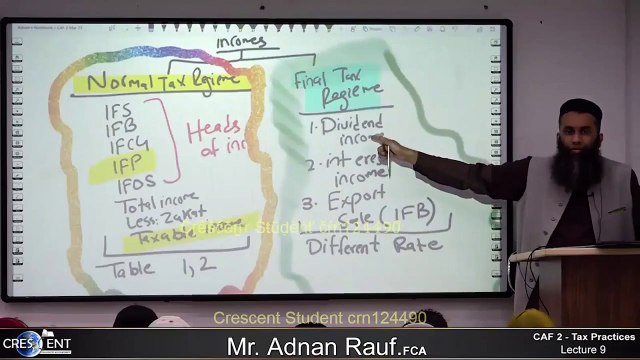 incomes
Normal Tax Regieme
IFS
IFB
IFCG
IFP
IFOS
Heads
of inc
Total income
Less: Zakat
Taxable income
Table 1,2
Final Tax
Regieme
1. Dividend
income
2. interest
income
3. Export
Sale (IFB)
Different Rate
Crescent Student crn124490
Crescent Student crn124490
CRESCENT
Mr. Adnan Rauf.FCA
CAF 2 - Tax Practices
Lecture 9